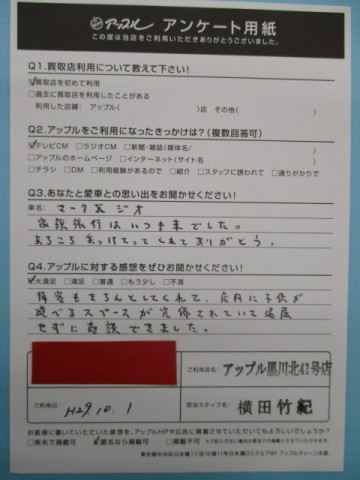 アップル アンケート用紙
この度は当店をご利用いただきありがとうございました。
Q1.買取店利用について教えて下さい!
☑買取店を初めて利用
□過去に買取店を利用したことがある
利用した店舗: アップル( )店 その他( )
Q2.アップルをご利用になったきっかけは?(複数回答可)
☑テレビCM □ラジオCM □新聞・雑誌(媒体名/ )
□アップルのホームページ □インターネット(サイト名 )
□チラシ □DM □利用経験があるので □紹介 □スタッフに誘われて □通りがかりで
Q3.あなたと愛車との思い出をお聞かせください!
車名: マークXジオ
家族旅行はいつも車でした。
あちこち連れてってくれてありがとう。
Q4.アップルに対する感想をぜひお聞かせください!
☑大満足 □満足 □普通 □もう少し □不満
接客もきちんとしてくれて、店内に子供が
遊べるスペースが完備されていて退屈
せずに商談できました。
ご利用店名 アップル黒川北41号店
ご利用日 H29.10.1
担当スタッフ名 横田竹紀
お客様に書いていただいた感想を、アップルHPや広告に掲載させていただいてもよろしいでしょうか?
□実名で掲載可 ☑匿名なら掲載可 掲載不可